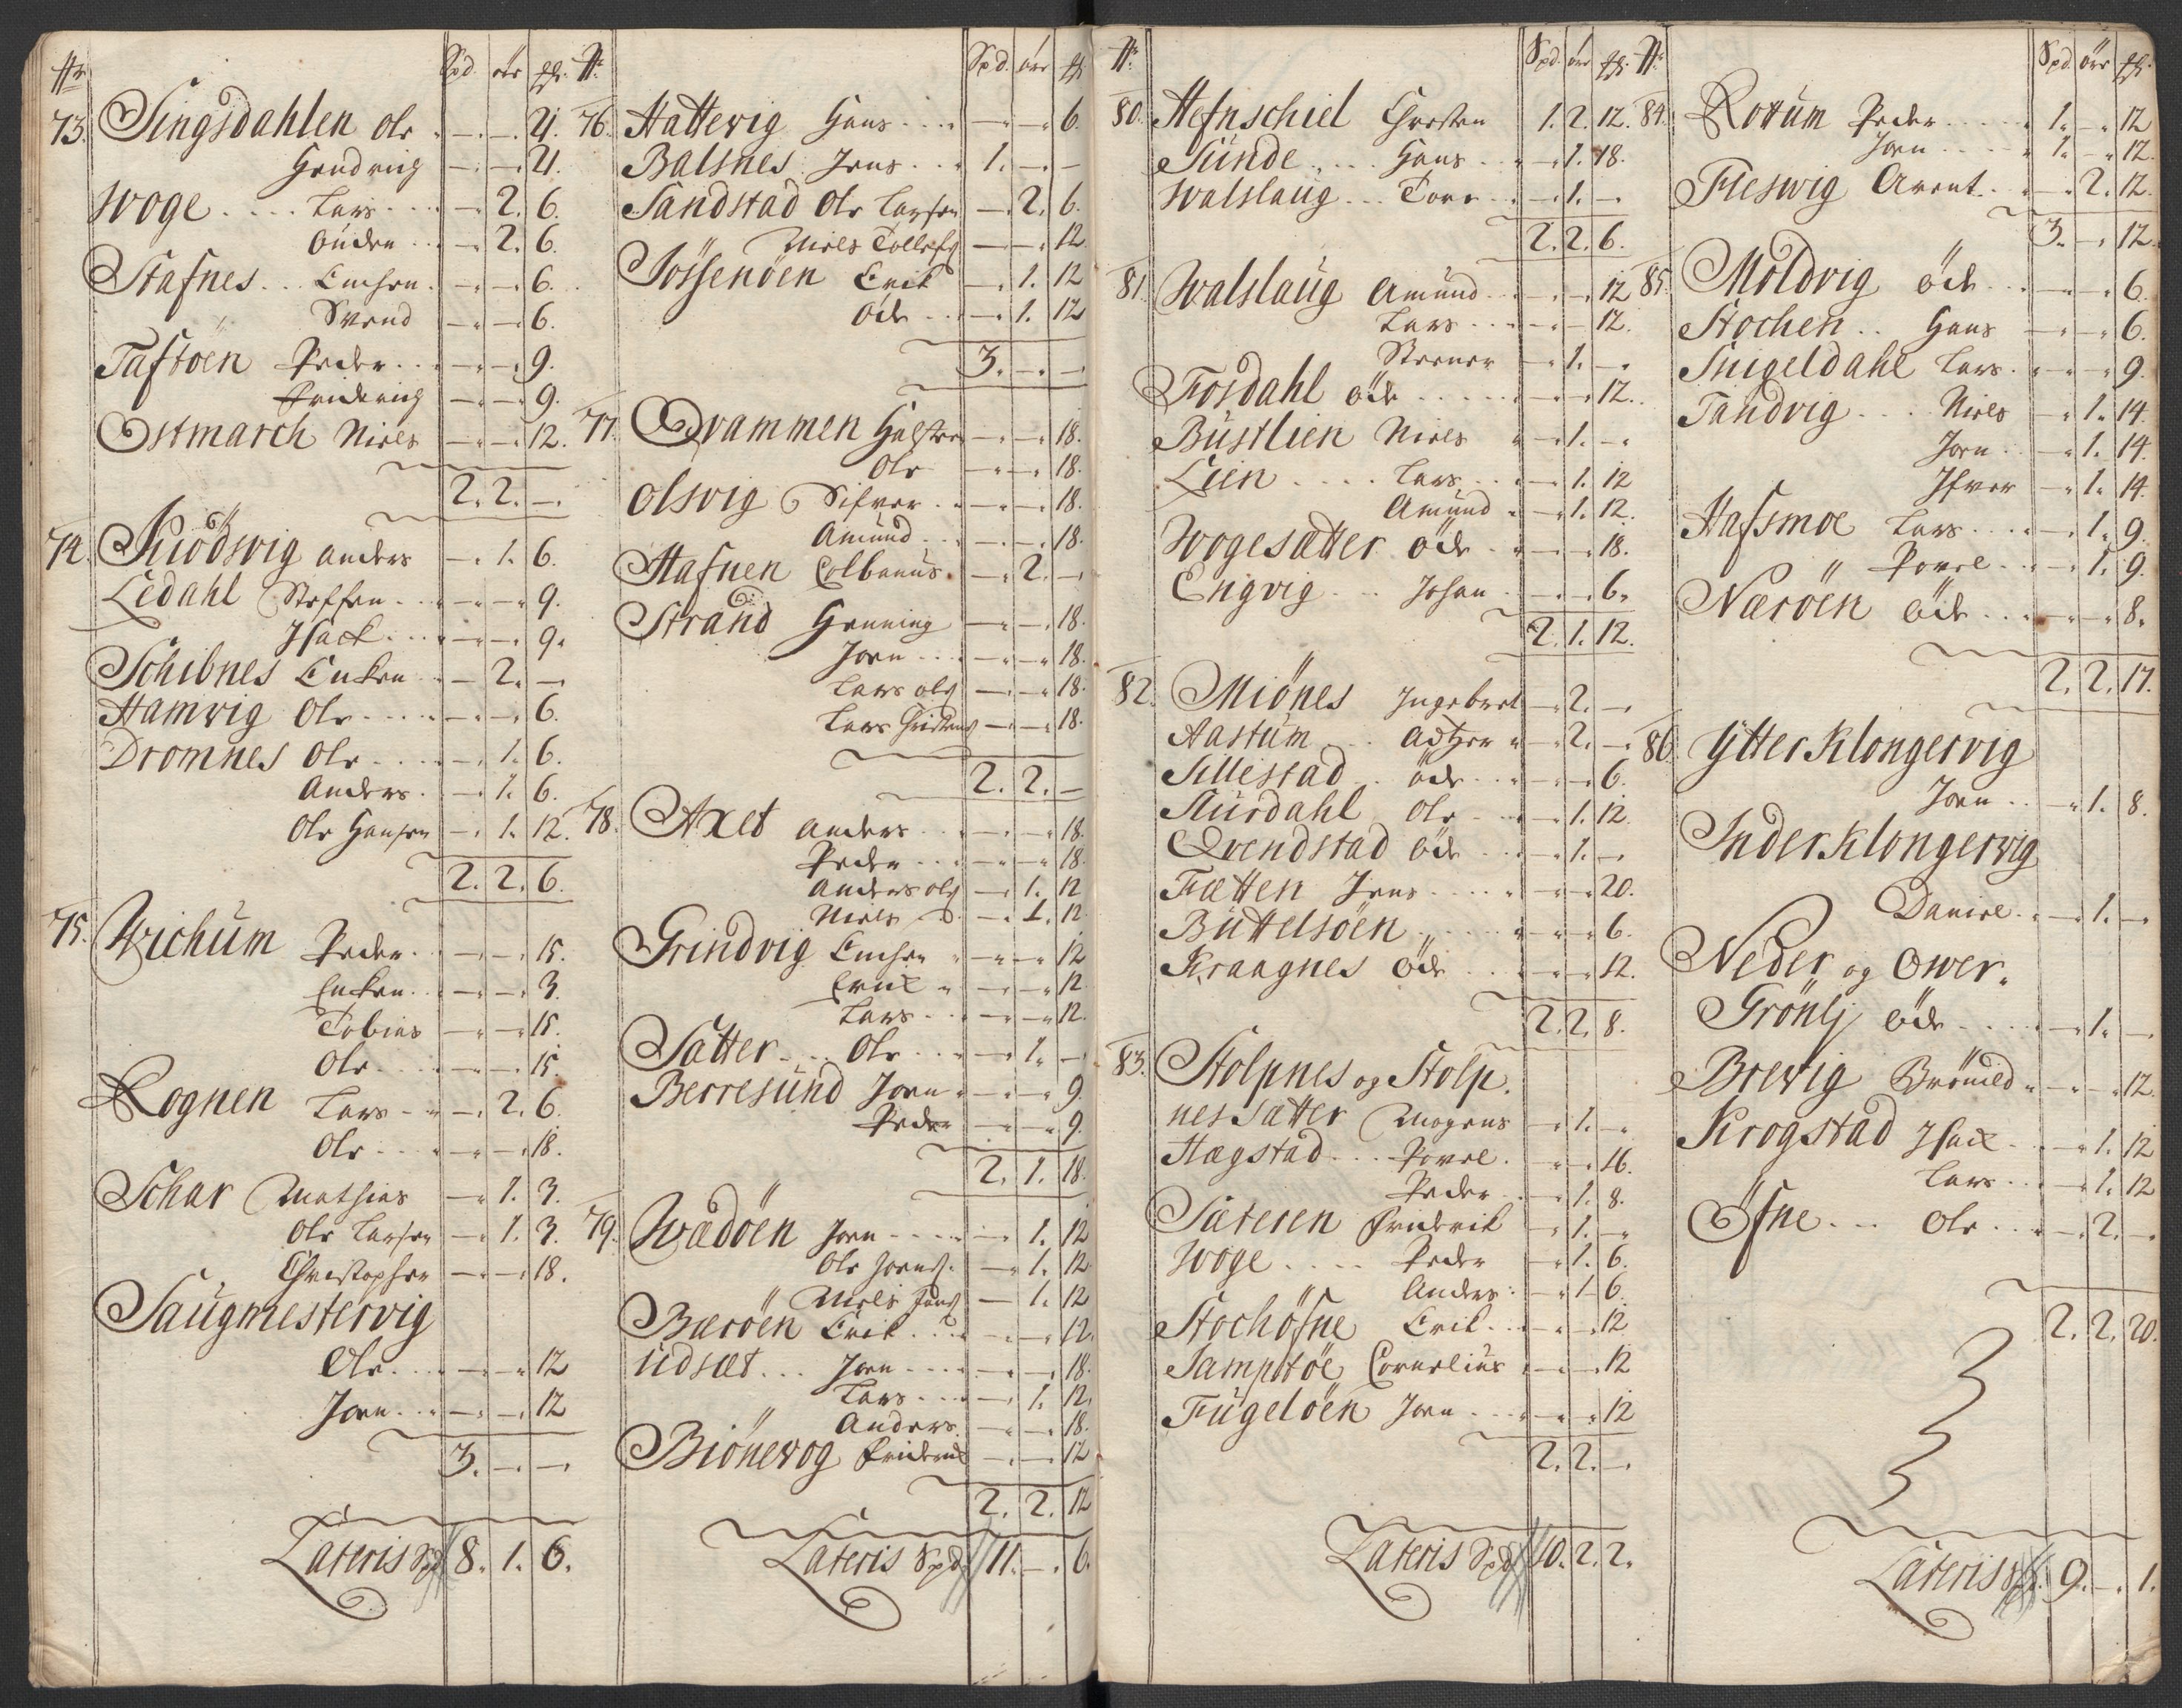 No Spd. ører ß.
73. Singsdahlen Ole - - 21.
Hendrich - - 21.
Woge Lars - 2. 6.
Ouden - 2. 6.
Stafnes Enchen - - 6.
Svend - - 6.
Taftöen Peder - - 9.
Friderich - - 9.
Ostmarch Niels - - 12.
2. 2. -
74. Kiödsvig anders - 1. 6.
Ledahl Steffen - - 9.
Isack - - 9.
Schibnes Enken - 2. -
Hamvig Ole - - 6.
Dromnes Ole - 1. 6.
Anders - 1. 6.
Ole Hansen - 1. 12.
2. 2. 6.
75. Wichum Peder - - 15.
Enken - - 3.
Tobias - - 15.
Ole - - 15.
Rognen Lars - 2. 6.
Ole - - 18.
Schar Mathias - 1. 3.
Ole Larsen - 1. 3.
Christopher - - 18.
Saugmestervig
Ole - - 12
Joen - - 12
3. - -
Lateris Spd 8. 1. 6.
No Spd. ører ß
76. Hattevig Hans - - 6.
Balsnes Jens 1. - -
Sandstad Ole Larsen - 2. 6.
Niels Tollefs - - 12
Jössenöen Erik - 1. 12
öde - 1. 12
3. - -
77. Qvammen Halsten - - 18.
Ole - - 18.
Olsvig Sifver - - 18.
Amund - - 18.
Hafnen Colbanus - 2. -
Strand Henning - - 18.
Joen - - 18.
Lars ols - - 18.
Lars Christens - - 18.
2. 2. -
78. Axet anders - - 18.
Peder - - 18.
anders ols - 1. 12
Niels - 1. 12
Grindvig Enchen - - 12
Erich - - 12.
Lars - - 12.
Sätter Ole - 1. -
Berresund Joen - - 9.
Peder - - 9.
2. 1. 18.
79. Wædöen Joen - 1. 12
Ole Joens - 1. 12
Niels Jons - 1. 12
Bæröen Erik - - 12.
Udsæt Joen - - 18.
Lars - 1. 12.
Anders - - 18.
Biönevog Friderich - - 12
2. 2. 12
Lateris Spd 11. - 6.
No Spd. ører ß.
80. Hefnschiel Chresten 1. 2. 12.
Sunde Hans - 1. 18.
Walslaug Tore - 1. -
2. 2. 6.
81. Walslaug Amund - - 12
Lars - - 12.
Steener - 1. -
Fosdahl öde - - 12.
Bustlien Niels - 1. -
Lien Lars - 1. 12
Amund - 1. 12.
Wogesætter Öde - - 18.
Engvig Johan - - 6.
2. 1. 12.
82. Miönes Ingebret - 2. -
Aastum - 2. -
Sillestad öde - - 6.
Sturdahl Ole - 1. 12.
Qvendstad öde - 1. -
Fætten Jens - - 20.
Buttelsöen - - 6.
Kraagnes Öde - - 12.
2. 2. 8.
83. Stolpnes og Stolp.
nes Sætter Mogens - 1. -
Hægstad Povel - - 16.
Peder - 1. 8.
Sæteren Friderik - 1. -
Woge Peder - 1. 6.
Anders - 1 6.
Stochöfne Erik - - 12
Samptöe Cornelius - - 12
Fugelöen Joen - - 12
2. 2. -
Lateris Spd 10. 2. 2.
No Spd ører ß.
84. Rottum Peder 1. - 12
Joen 1. - 12.
Fleswig Arent - 2. 12.
3. - 12.
85. Moldvig öde - - 6.
Stochen Hans - - 6.
Snigeldahl Lars - - 9.
Tandvig Niels - 1. 14.
Joen - 1. 14.
Ifver - 1. 14.
Hafsmoe Lars - 1. 9.
Povel - 1. 9.
Næröen öde - - 8.
2. 2. 17.
86. Ytter Klongervig
Joen - 1. 8.
Inder Klongervig
Daniel - 1. -
Neder og Ower.
Grönlj öde - 1. -
Brevig Brönild - - 12.
Krogstad Isack - 1. 12
Lars - 1. 12
Öfne Ole - 2. -
2. 2. 20.
Lateris Spd 9. - 1.